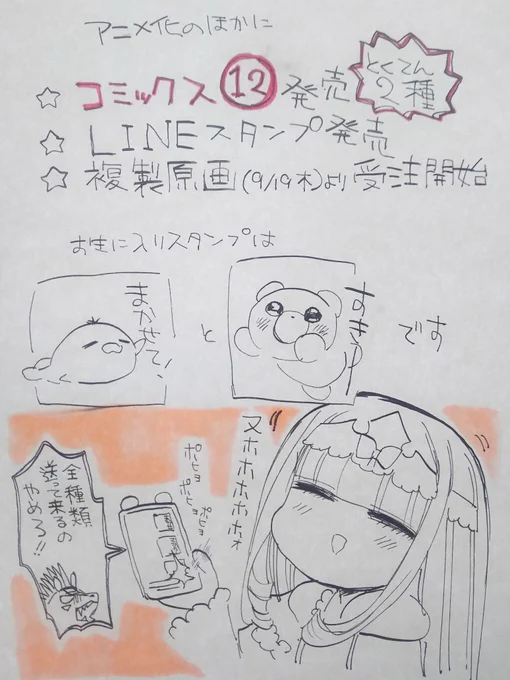 アニメ化のほかに
☆コミックス⑫発売
とくてん
2種
☆LINEスタンプ発売
☆複製原画(9/19木)より受注開始
お気に入りスタンプは
まかせて!
と
すき♡
です
ヌホホホホホォ
ポヒョ
ポヒョ
ポヒョ
全種類
送って来るの
やめろ!!